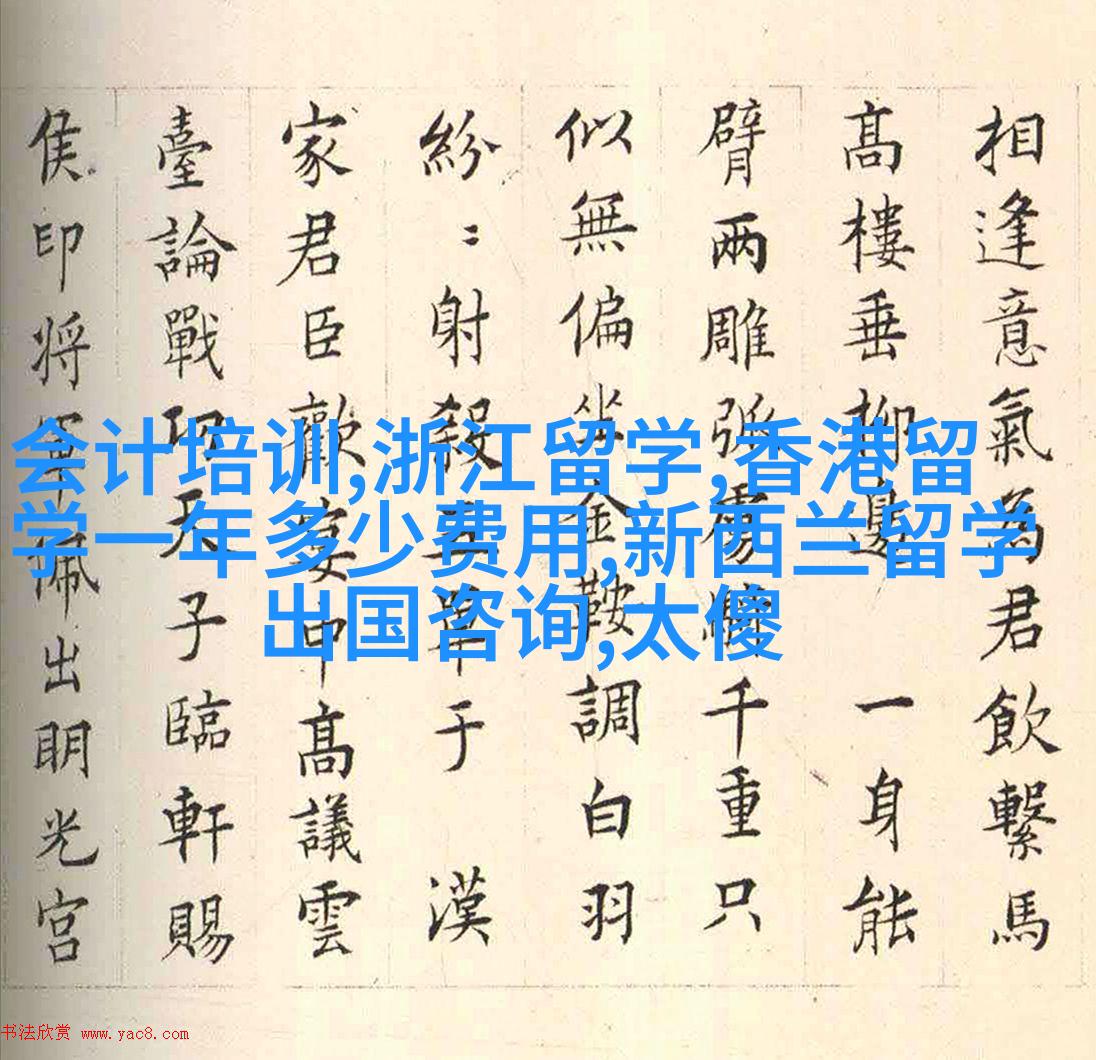 相逢意氣為君飲繫馬
髙樓垂柳邊 一身能
臂兩雕弧虜騎千重只
似無偏坐金鞍調白羽
紛〻射殺五單于 漢
家君臣歡宴中髙議雲
臺論戰功天子臨軒賜
侯印将軍珮出明光宮
会计培训,浙江留学,香港留
学一年多少费用,新西兰留学
出国咨询,太傻
书法欣赏 www.yac8.com